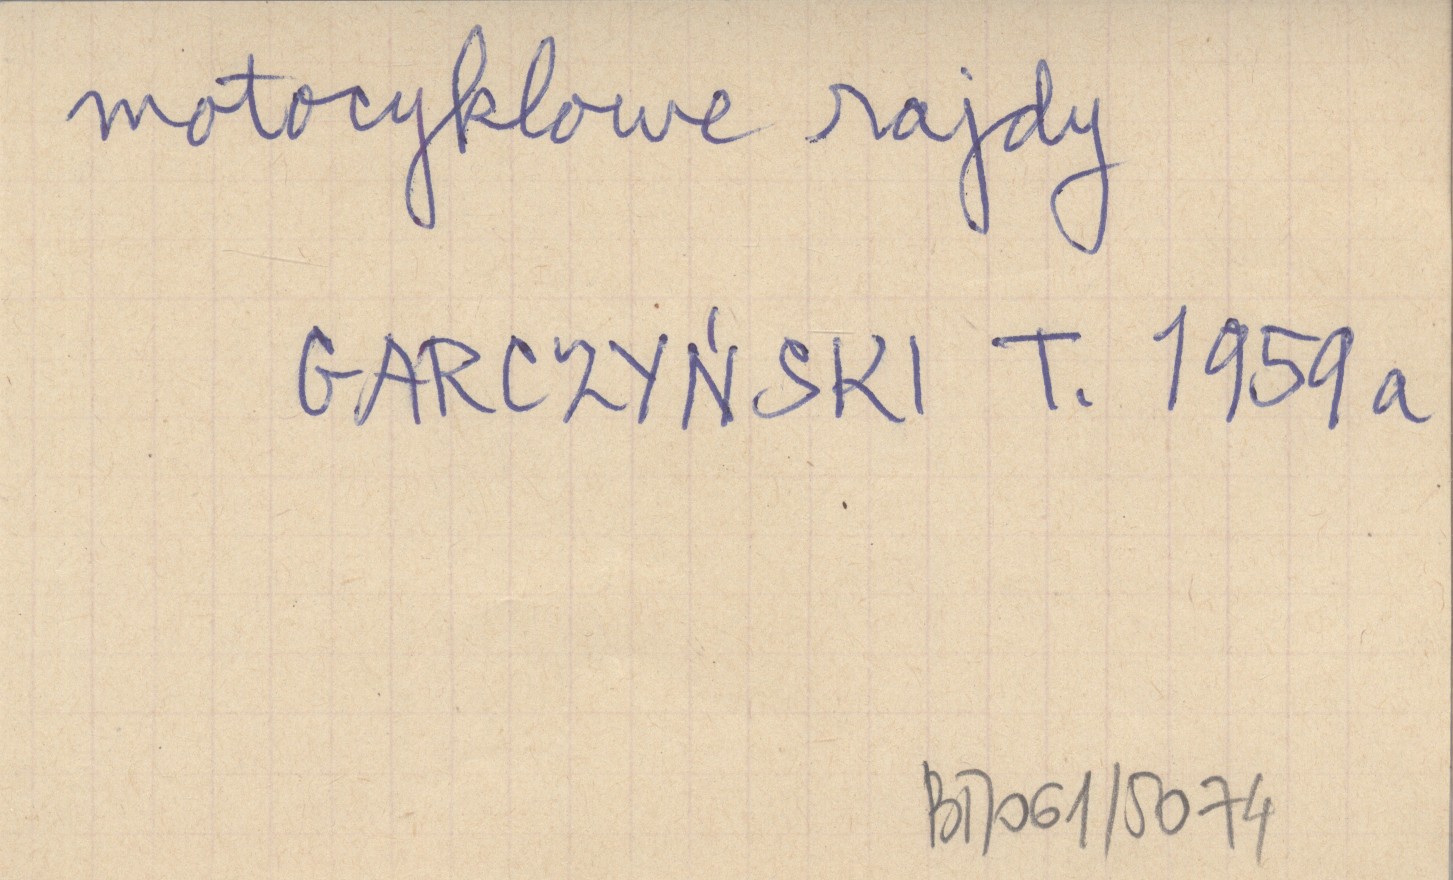 motocyklowe rajdy
GARCZYŃSKI T. 1959a
BI/061/5074